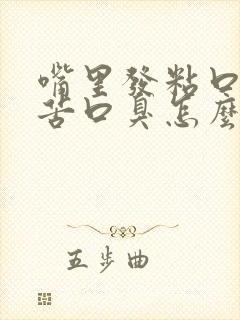 嘴里發粘口
苦口臭怎麼
五步曲